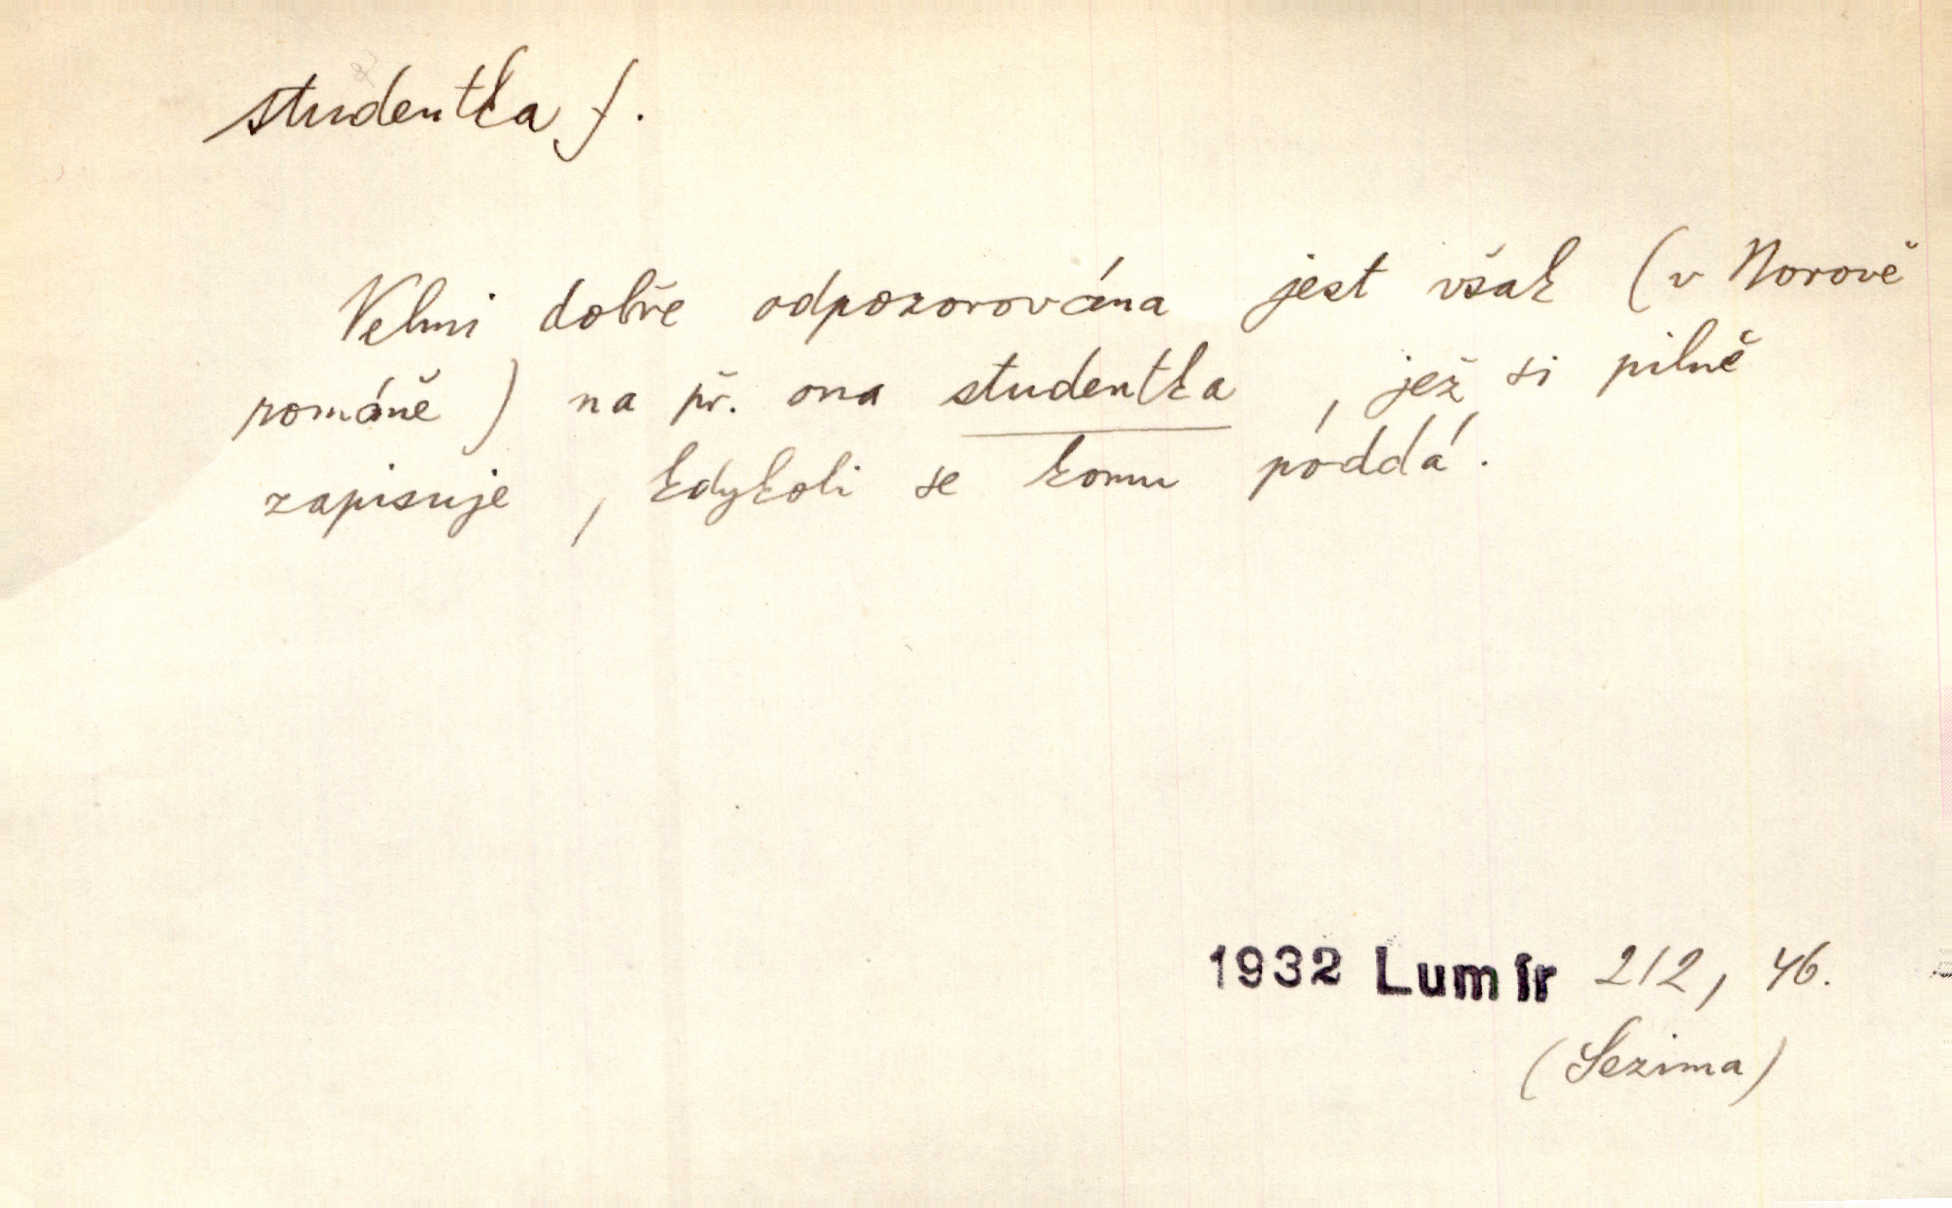 studentka f.
Velmi dobře odpozorována jest však (v Norově
románě) na př. ona studentka, jež si pilně
zapisuje, kdykoli se komu póddá.
1932 Lumír 212, 46.
(Sezima)